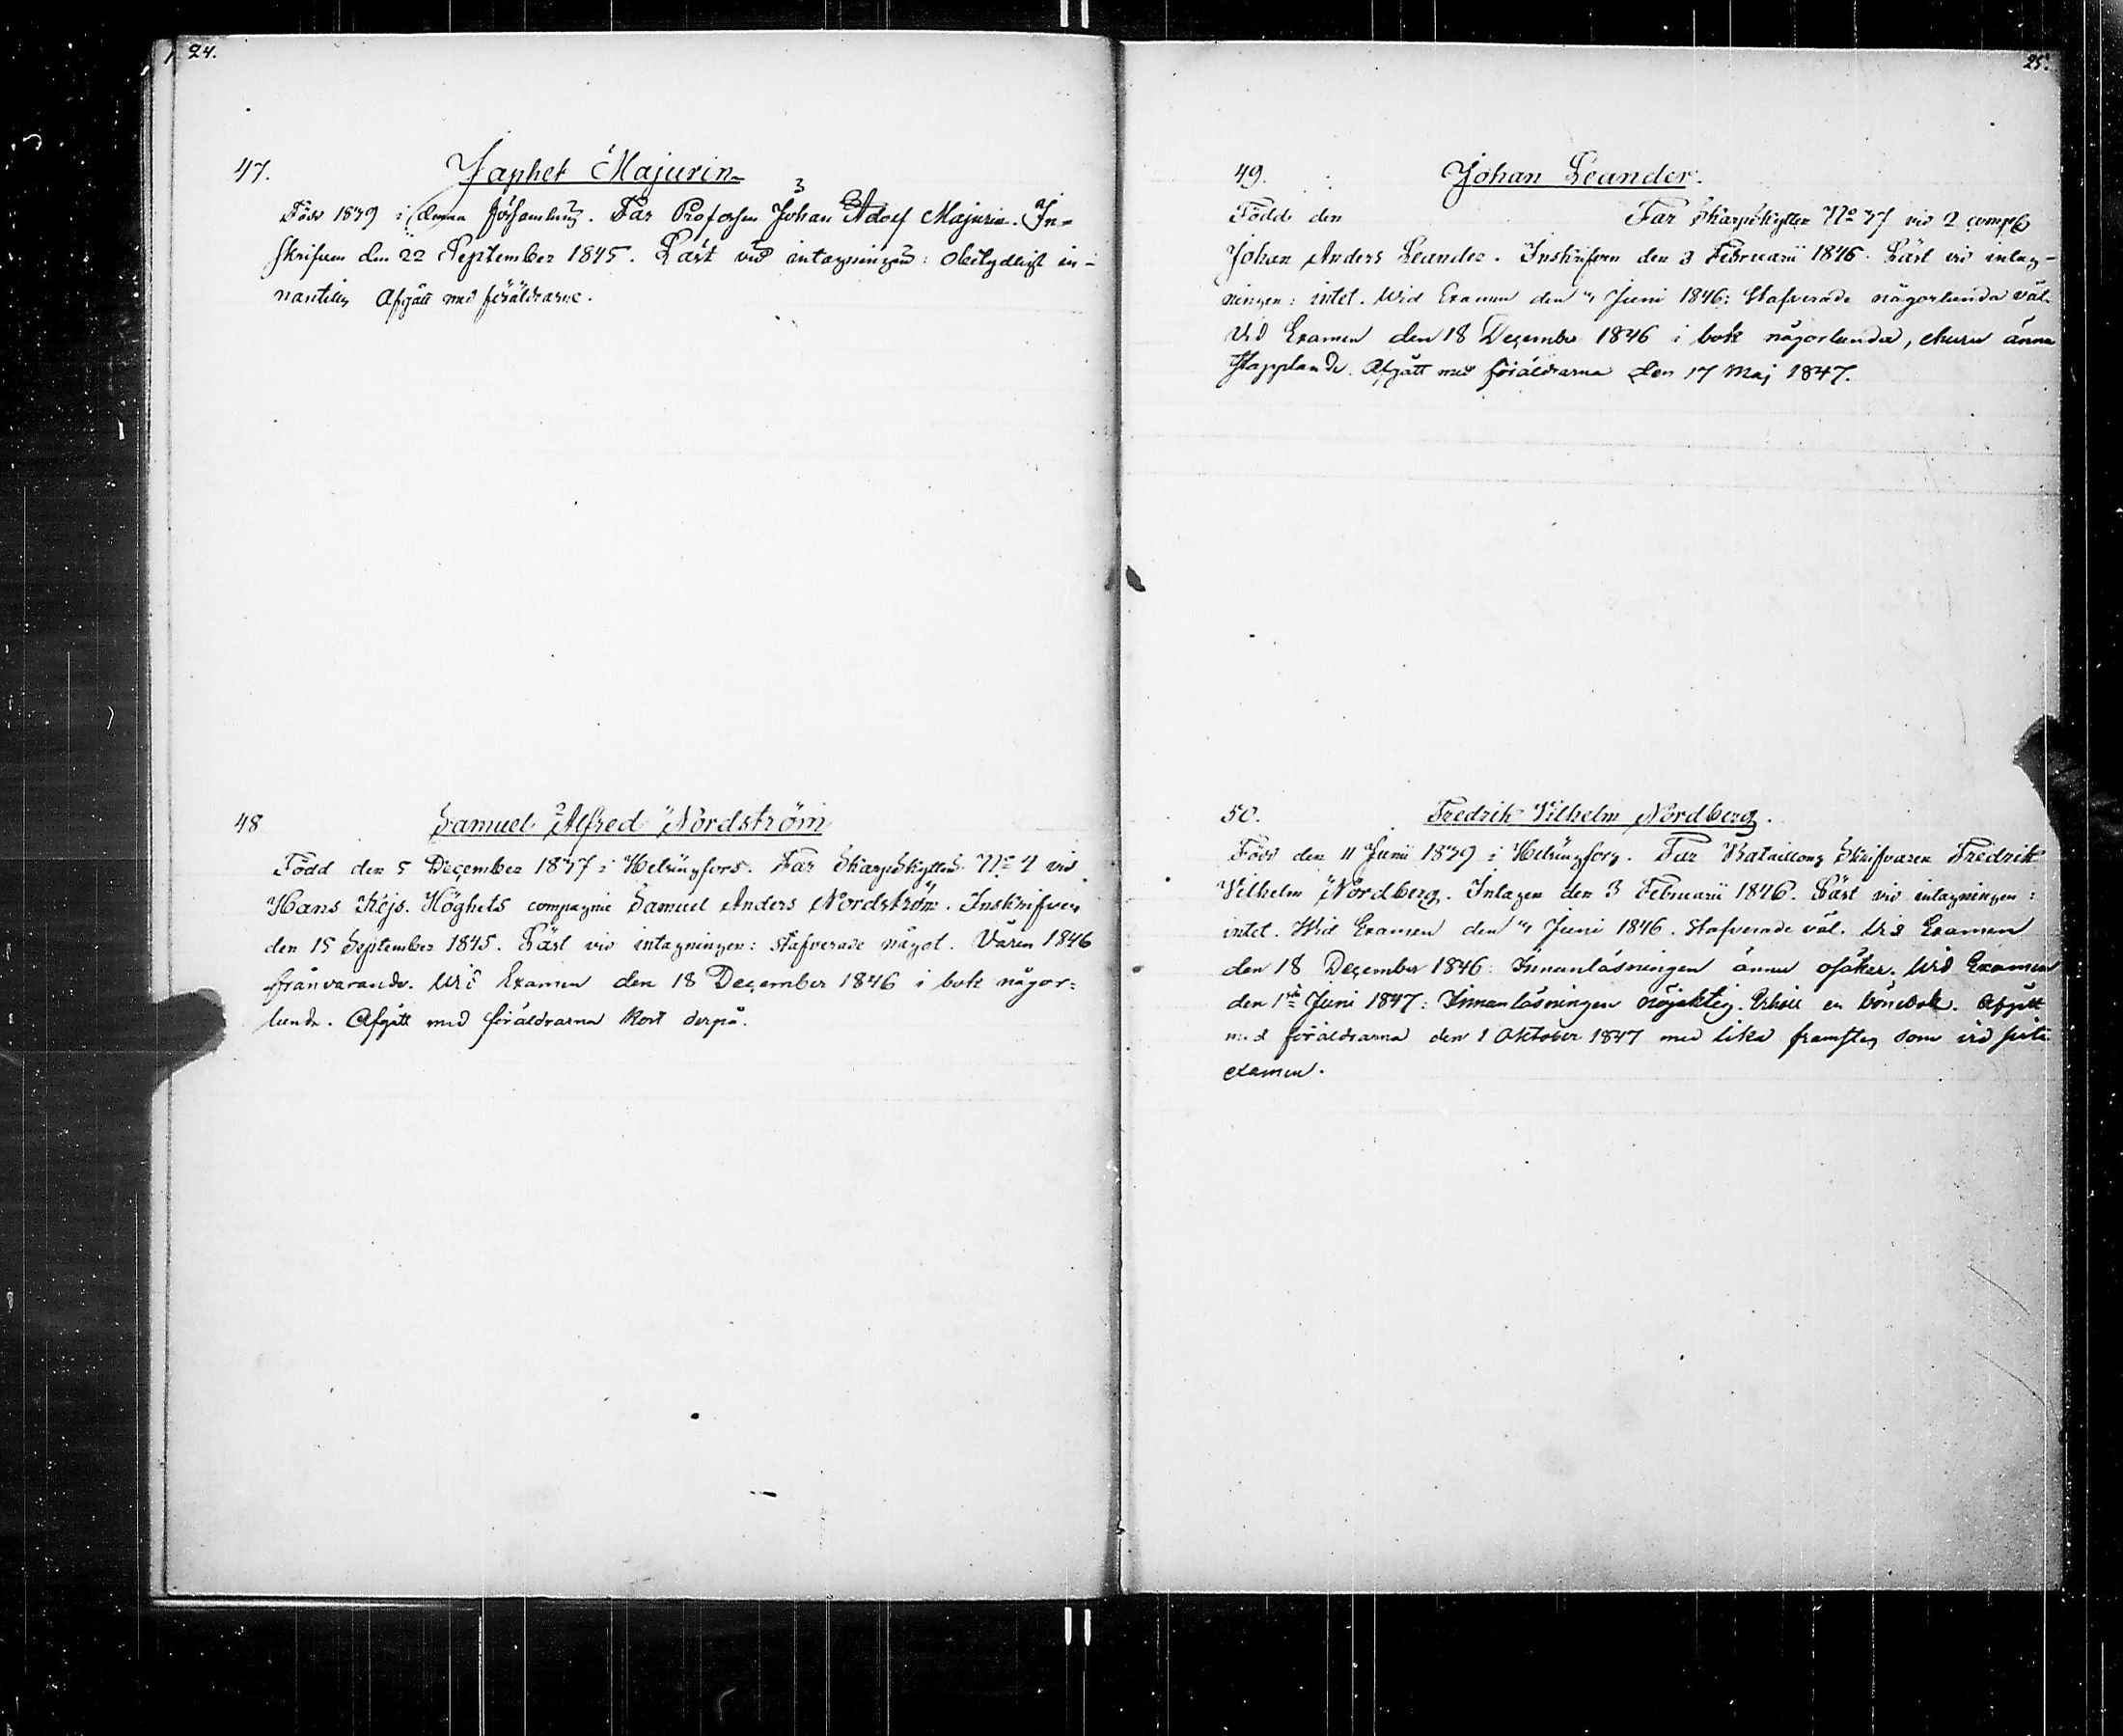 24.
47.
Japhet Majurin
Född 1839 i denna församling. Far Profossen Johan Adolf Majurin. In-
skrifven den 22 September 1845. Läst vid intagningen: obetydligt in-
nantill. Afgått med föräldrarne.
48
Samuel Alfred Nordström
Född den 5 December 1837 i Helsingfors. Far Skarpskytten No 4 vid
Hans Kejs. Höghets compagnie Samuel Anders Nordström. Inskrifven
den 15 September 1845. Läst vid intagningen: stafverade något. Våren 1846
frånvarande. Wid Examen den 18 December 1846 i bok någor-
lunda. Afgått med föräldrarna kort derpå.
25.
49.
Johan Leander.
Född den Far Skarpskytten No 37 vid 2 comp.
Johan Anders Leander. Inskrifven den 3 Februarii 1846. Läst vid intag-
ningen: intet. Wid Examen den 4 Juni 1846: Stafverade någorlunda väl.
Vid Examen den 18 December 1846 i bok någorlunda, ehuru ännu
stapplande. Afgått med föräldrarna den 17 Maj 1847.
50.
Fredrik Vilhelm Nordberg.
Född den 11 Junii 1839 i Helsingfors. Far Bataillons Skrifvaren Fredrik
Vilhelm Nordberg. Intagen den 3 Februarii 1846. Läst vid intagningen:
intet. Wid Examen den 4 Juni 1846. Stafverade väl. Vid Examen
den 18 December 1846: Innanläsningen ännu osäker. Wid Examen
den 1sta Juni 1847: Innanläsningen nöjaktig. Erhöll en bönebok. Afgått
med föräldrarna den 1 Oktober 1847 med lika framsteg som vid sista
examen.